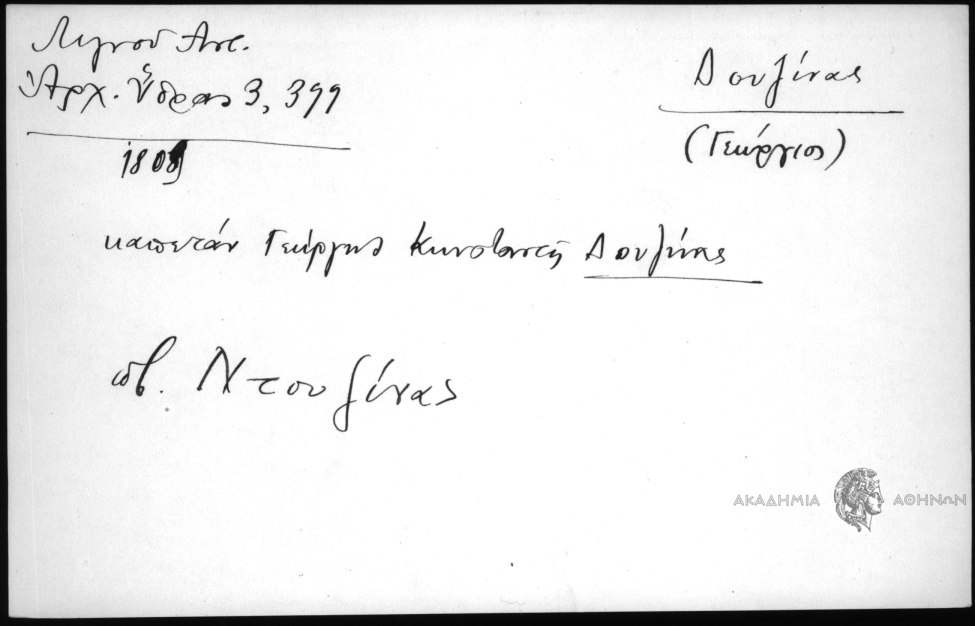 Λιγνού Αντ.
Ἀρχ. Ὕδρας 3, 399
Δουζίνας
(Γεώργιος)
1809
καπετάν Γεώργης Κωνσταντή Δουζίνας
πβ. Ντουζίνας
ΑΚΑΔΗΜΙΑ ΑΘΗΝΩΝ